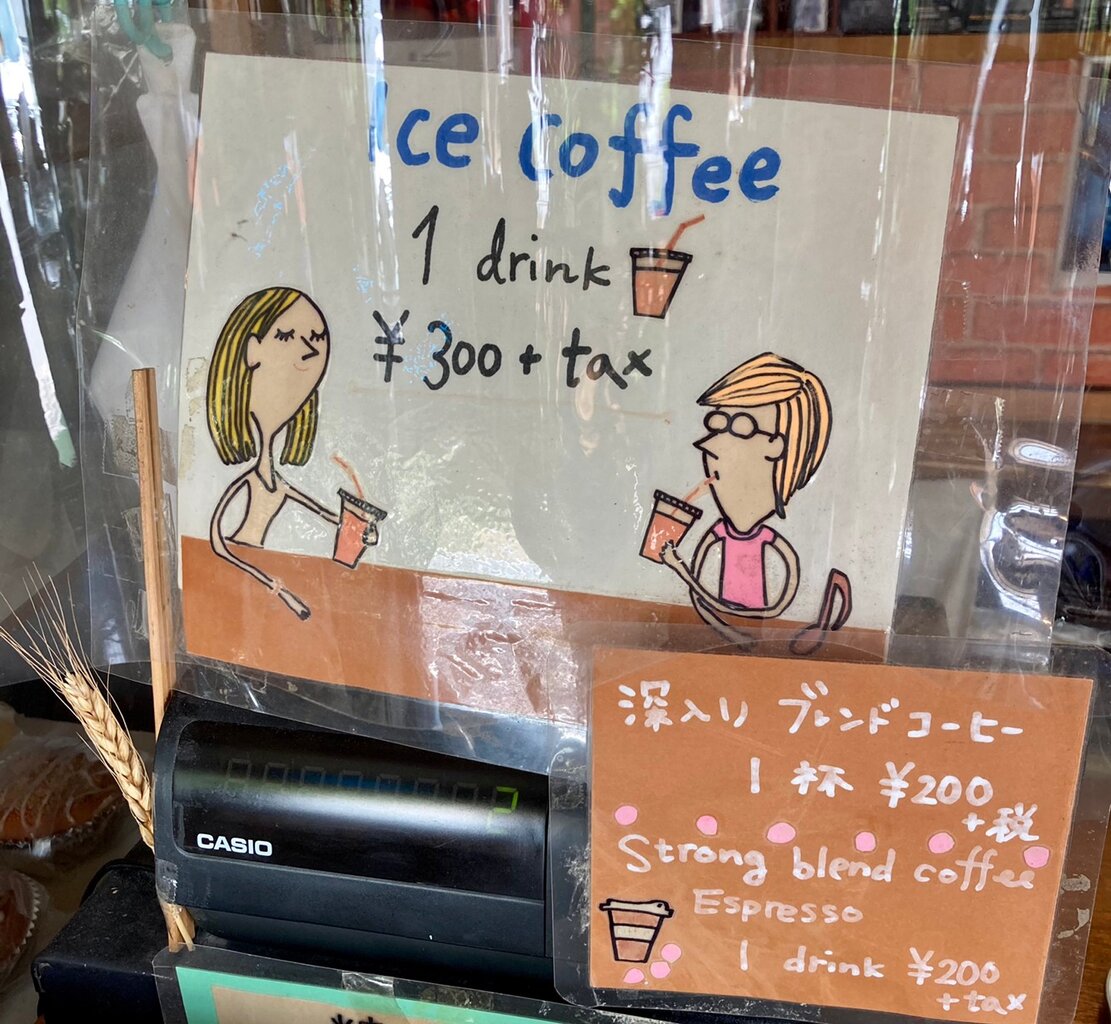 Ice coffee
1 drink
¥300+tax
深入り ブレンドコーヒー
1 杯 ¥200
+税
Strong blend coffee
Espresso
1 drink ¥200
+tax
CASIO